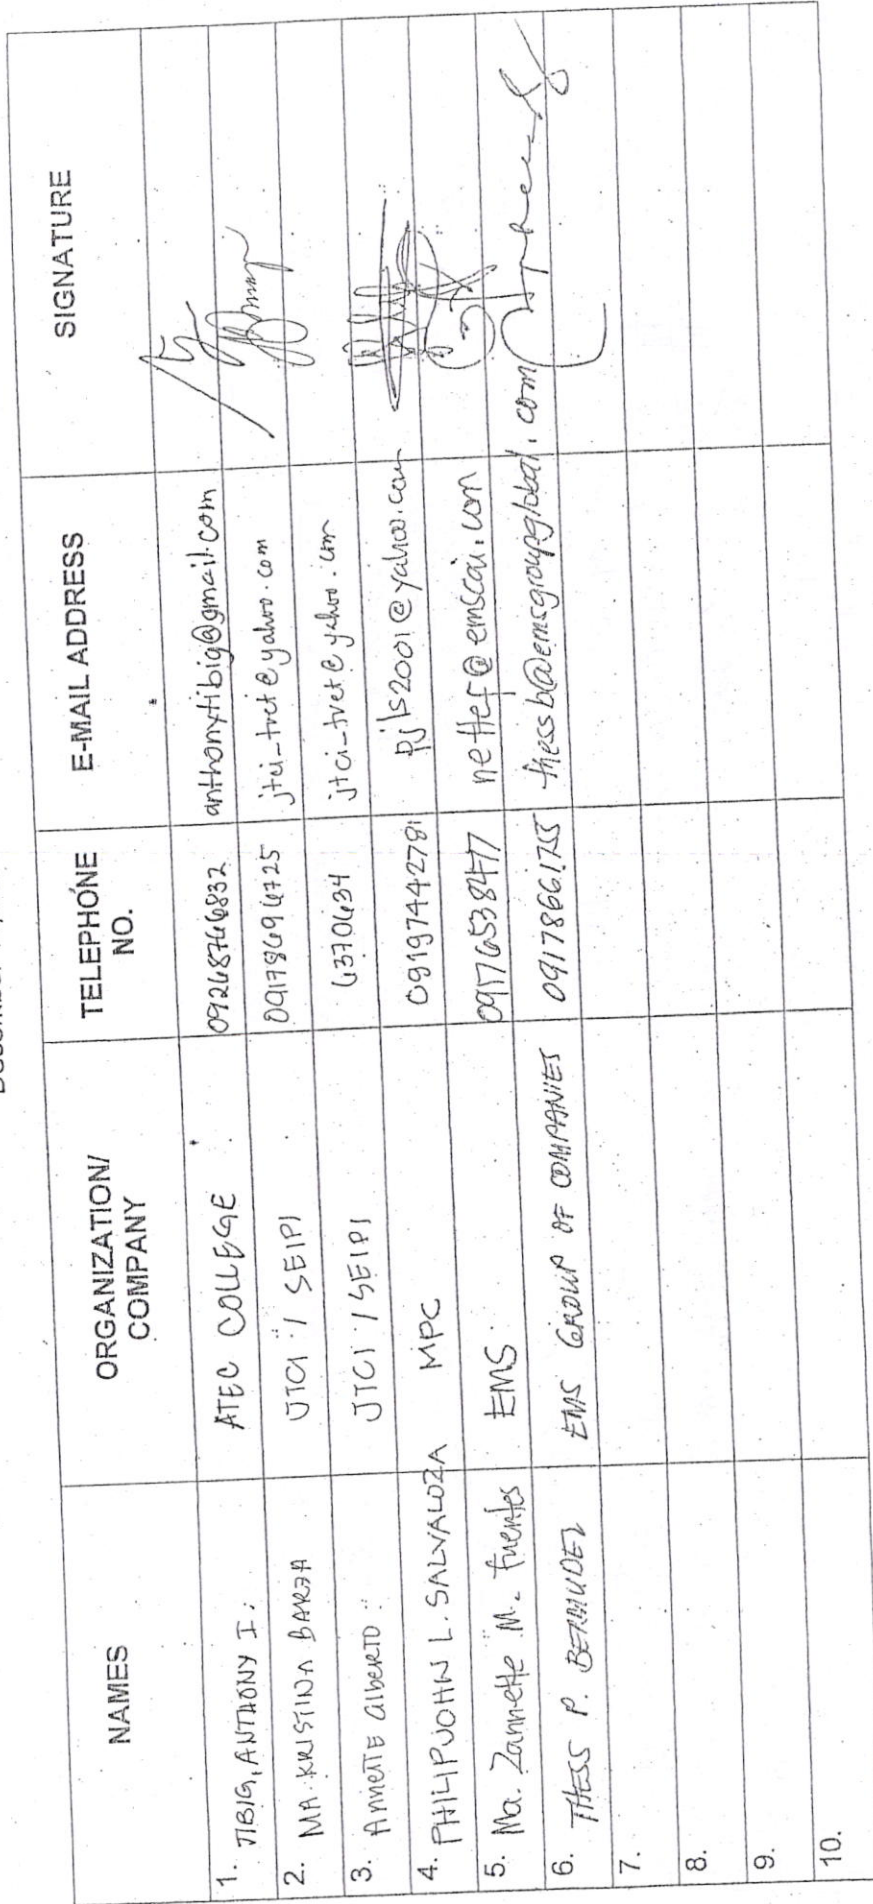 NAMES ORGANIZATION/ COMPANY TELEPHONE NO. E-MAIL ADDRESS SIGNATURE
1. TIBIG, ANTHONY I. ATEC COLLEGE 09268766832 anthonytibig@gmail.com
2. MA. KRISTINA BARJA JTCI / SEIPI 09178696725 jtci-tvet@yahoo.com
3. Annette Alberto JTCI / SEIPI 6370634 jtci-tvet@yahoo.com
4. PHILIPJOHN L. SALVALOZA MPC 09197442781 pjls2001@yahoo.com
5. Ma. Zannette M. Fuentes EMS 09176538477 nettef@emscai.com
6. THESS P. BERMUDEZ EMS GROUP OF COMPANIES 09178661755 thessb@emsgroupglobal.com
7.
8.
9.
10.